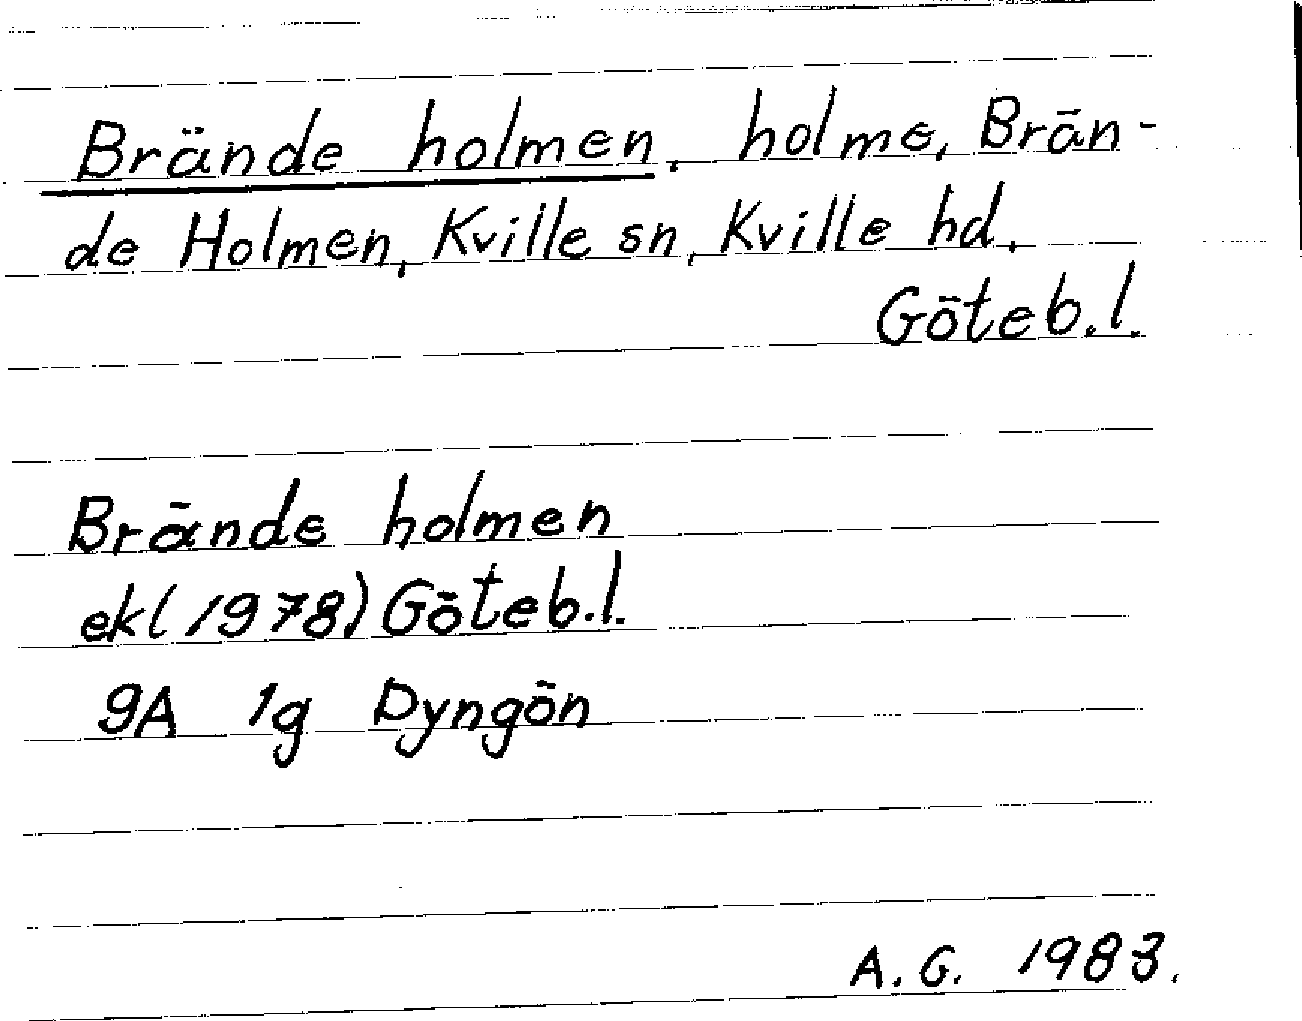 Brände holmen. holme, Brän-
de Holmen, Kville sn, Kville hd.
Göteb.l.
Brände holmen
ek(1978) Göteb.l.
9A 1g Dyngön
A.G. 1983.